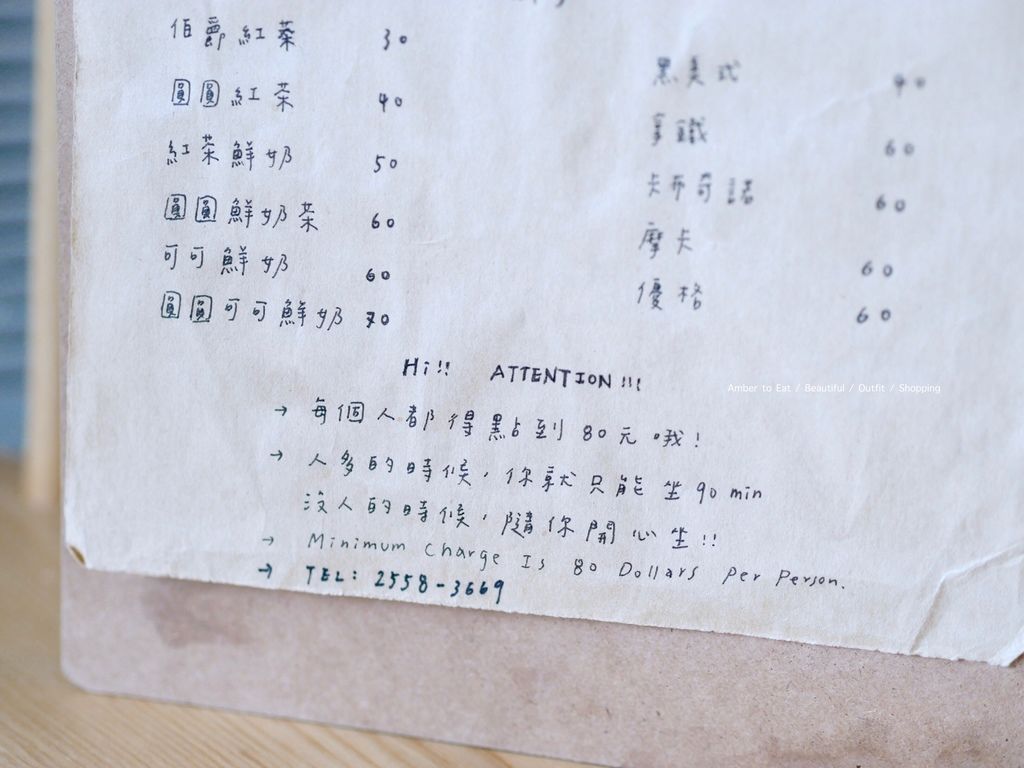 伯爵紅茶 30
圓圓紅茶 40
紅茶鮮奶 50
圓圓鮮奶茶 60
可可鮮奶 60
圓圓可可鮮奶 70
黑美式 40
拿鐵 60
卡布奇諾 60
摩卡 60
優格 60
Hi!! ATTENTION!!!
Amber to Eat / Beautiful / Outfit / Shopping
→ 每個人都得點到80元哦!
→ 人多的時候,你就只能坐90min
沒人的時候,隨你開心坐!!
→ Minimum charge Is 80 Dollars per person.
→ TEL: 2558-3669